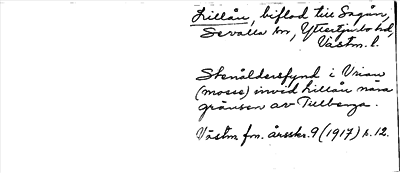 Lillån, biflod till Sagån,
Sevalla sn, Yttertjurbo hd,
Västm. l.
Stenåldersfynd i Urian
(mosse) invid Lillån nära
gränsen av Tillberga.
Västm fm. årsskr. 9 (1917) s. 12.